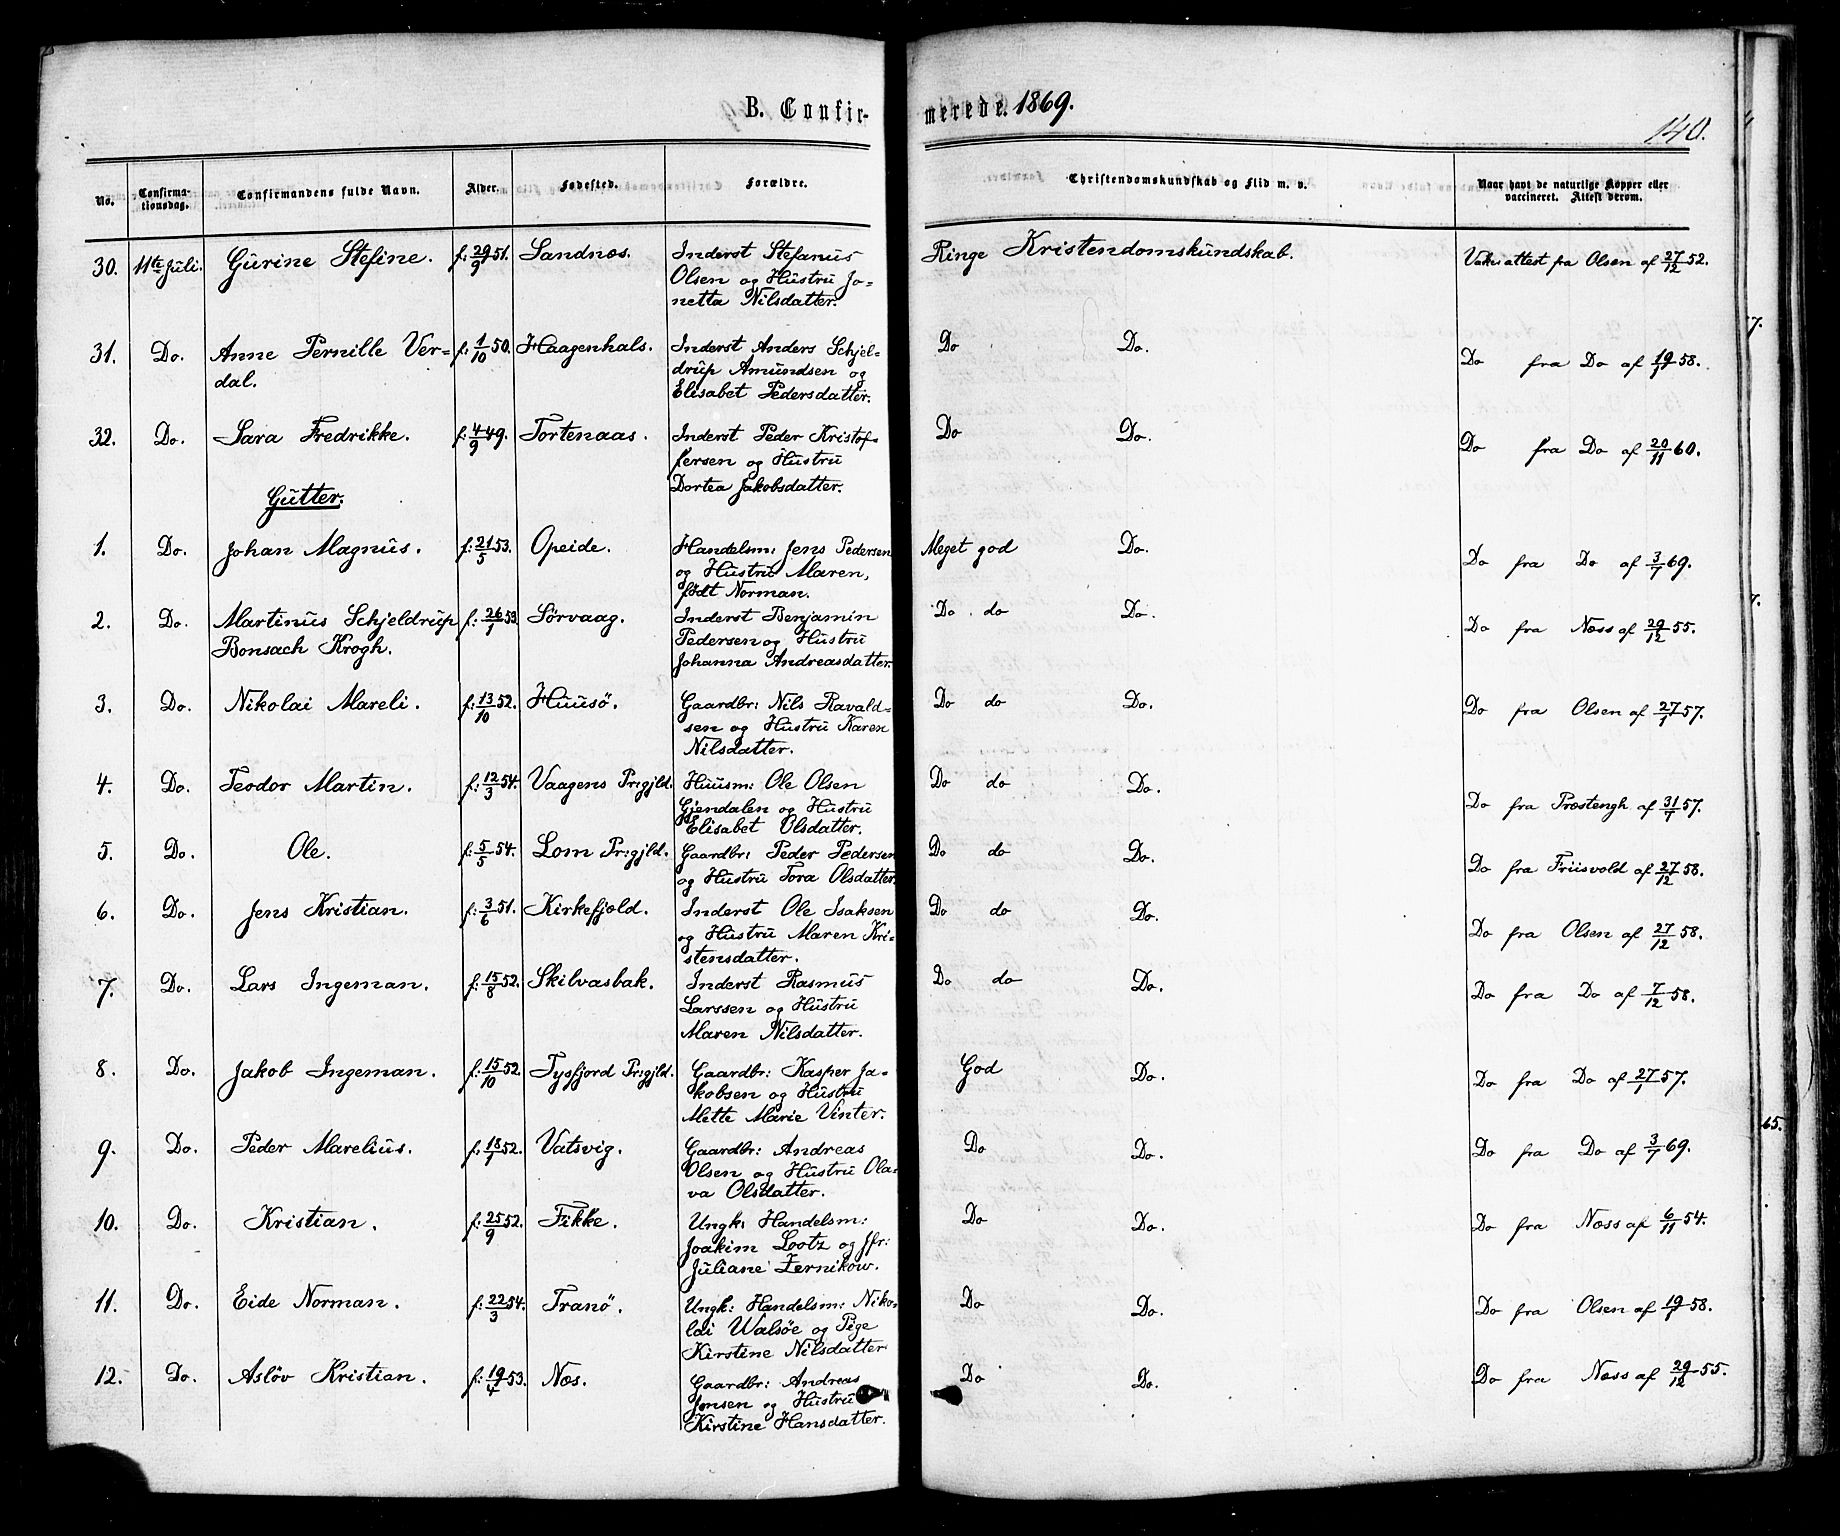 B. Confir-
merede. 1869.
140.
No.
Confirma-
tionsdag.
Confirmandens fulde Navn.
Alder.
Fødested.
Forældre.
Christendomskundskab og Flid m. v.
Naar havt de naturlige Kopper eller
vaccineret. Attest derom.
30. 11te Juli. Gurine Stefine. f: 29/9 51. Sandnæs. Inderst Stefanus
Olsen og Hustru Jo-
netta Nilsdatter.
Ringe Kristendomskundskab. attest fra Olsen af 27/12 52.
31. Do. Anne Pernille Ver-
dal.
f: 1/10 50. Haagenhals. Inderst Anders Schjel-
drup Amundsen og
Elisabet Pedersdatter.
Do Do. Do fra Do af 19/1 58.
32. Do. Sara Fredrikke. f: 4/9 49. Tortenaas. Inderst Peder Kristof-
fersen og Hustru
Dortea Jakobsdatter.
Do Do. Do fra Do af 20/11 60.
Gutter.
1. Do. Johan Magnus. f: 21/5 53. Opeide. Handelsm: Jens Pedersen
og Hustru Maren,
født Norman.
Meget god Do. Do fra Do af 3/7 69.
2. Do. Martinus Schjeldrup
Bonsach Krogh.
f: 26/1 53 Sörvaag. Inderst Benjamin
Pedersen og Hustru
Johanna Andreasdatter.
Do. do Do. Do fra Næss af 29/12 55.
3. Do. Nikolai Mareli. f: 13/10 52. Huusö. Gaardbr: Nils Ravald-
sen og Hustru Karen
Nilsdatter.
Do do Do. Do fra Olsen af 27/1 57.
4. Do. Teodor Martin. f: 12/3 54. Vaagens Pr:gjld. Huusm: Ole Olsen
Gjendalen og Hustru
Elisabet Olsdatter.
Do do Do. Do fra Præstengh af 31/7 57.
5. Do. Ole. f: 5/5 54. Lom Pr:gjld. Gaardbr: Peder Pedersen
og Hustru Tora Olsdatter.
Do do Do. Do fra Friisvold af 27/12 58.
6. Do. Jens Kristian. f: 3/6 51. Kirkefjæld. Inderst Ole Isaksen
og Hustru Maren Kri-
stensdatter.
Do do Do. Do fra Olsen af 27/12 58.
7. Do. Lars Ingeman. f: 15/8 52. Skilvasbak. Inderst Rasmus
Larssen og Hustru
Maren Nilsdatter.
Do do Do. Do fra Do af 7/12 58.
8. Do. Jakob Ingeman. f: 15/10 52. Tysfjord Pr:gjld. Gaardbr: Kasper Ja-
kobsen og Hustru
Mette Marie Vinter.
God Do. Do fra Do af 27/1 57.
9. Do. Peder Marelius. f: 18/1 52. Vatsvig. Gaardbr: Andreas
Olsen og Hustru Ola-
va Olsdatter.
Do Do. Do fra Do af 3/7 69.
10. Do. Kristian. f: 25/9 52. Fikke. Ungk: Handelsm:
Joakim Lootz og Jfr:
Juliane Zernikow.
Do Do. Do fra Næss af 6/11 54.
11. Do. Eide Norman. f: 22/3 54. Tranö. Ungk: Handelsm: Niko-
lai Walsöe og Pige
Kirstine Nilsdatter
Do Do. Do fra Olsen af 19/1 58.
12. Do. Aslöv Kristian. f: 19/4 53. Næs. Gaardbr: Andreas
Jonsen og Hustru
Kirstine Hansdatter.
Do Do. Do fra Næss af 29/12 55.